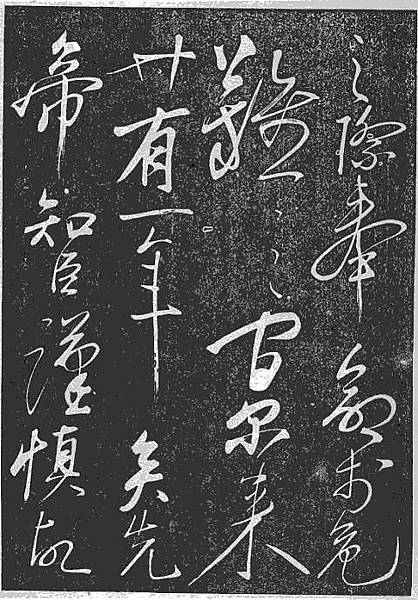 之際奉命於危
難之間爾來
廿有一年矣先
帝知臣謹慎故